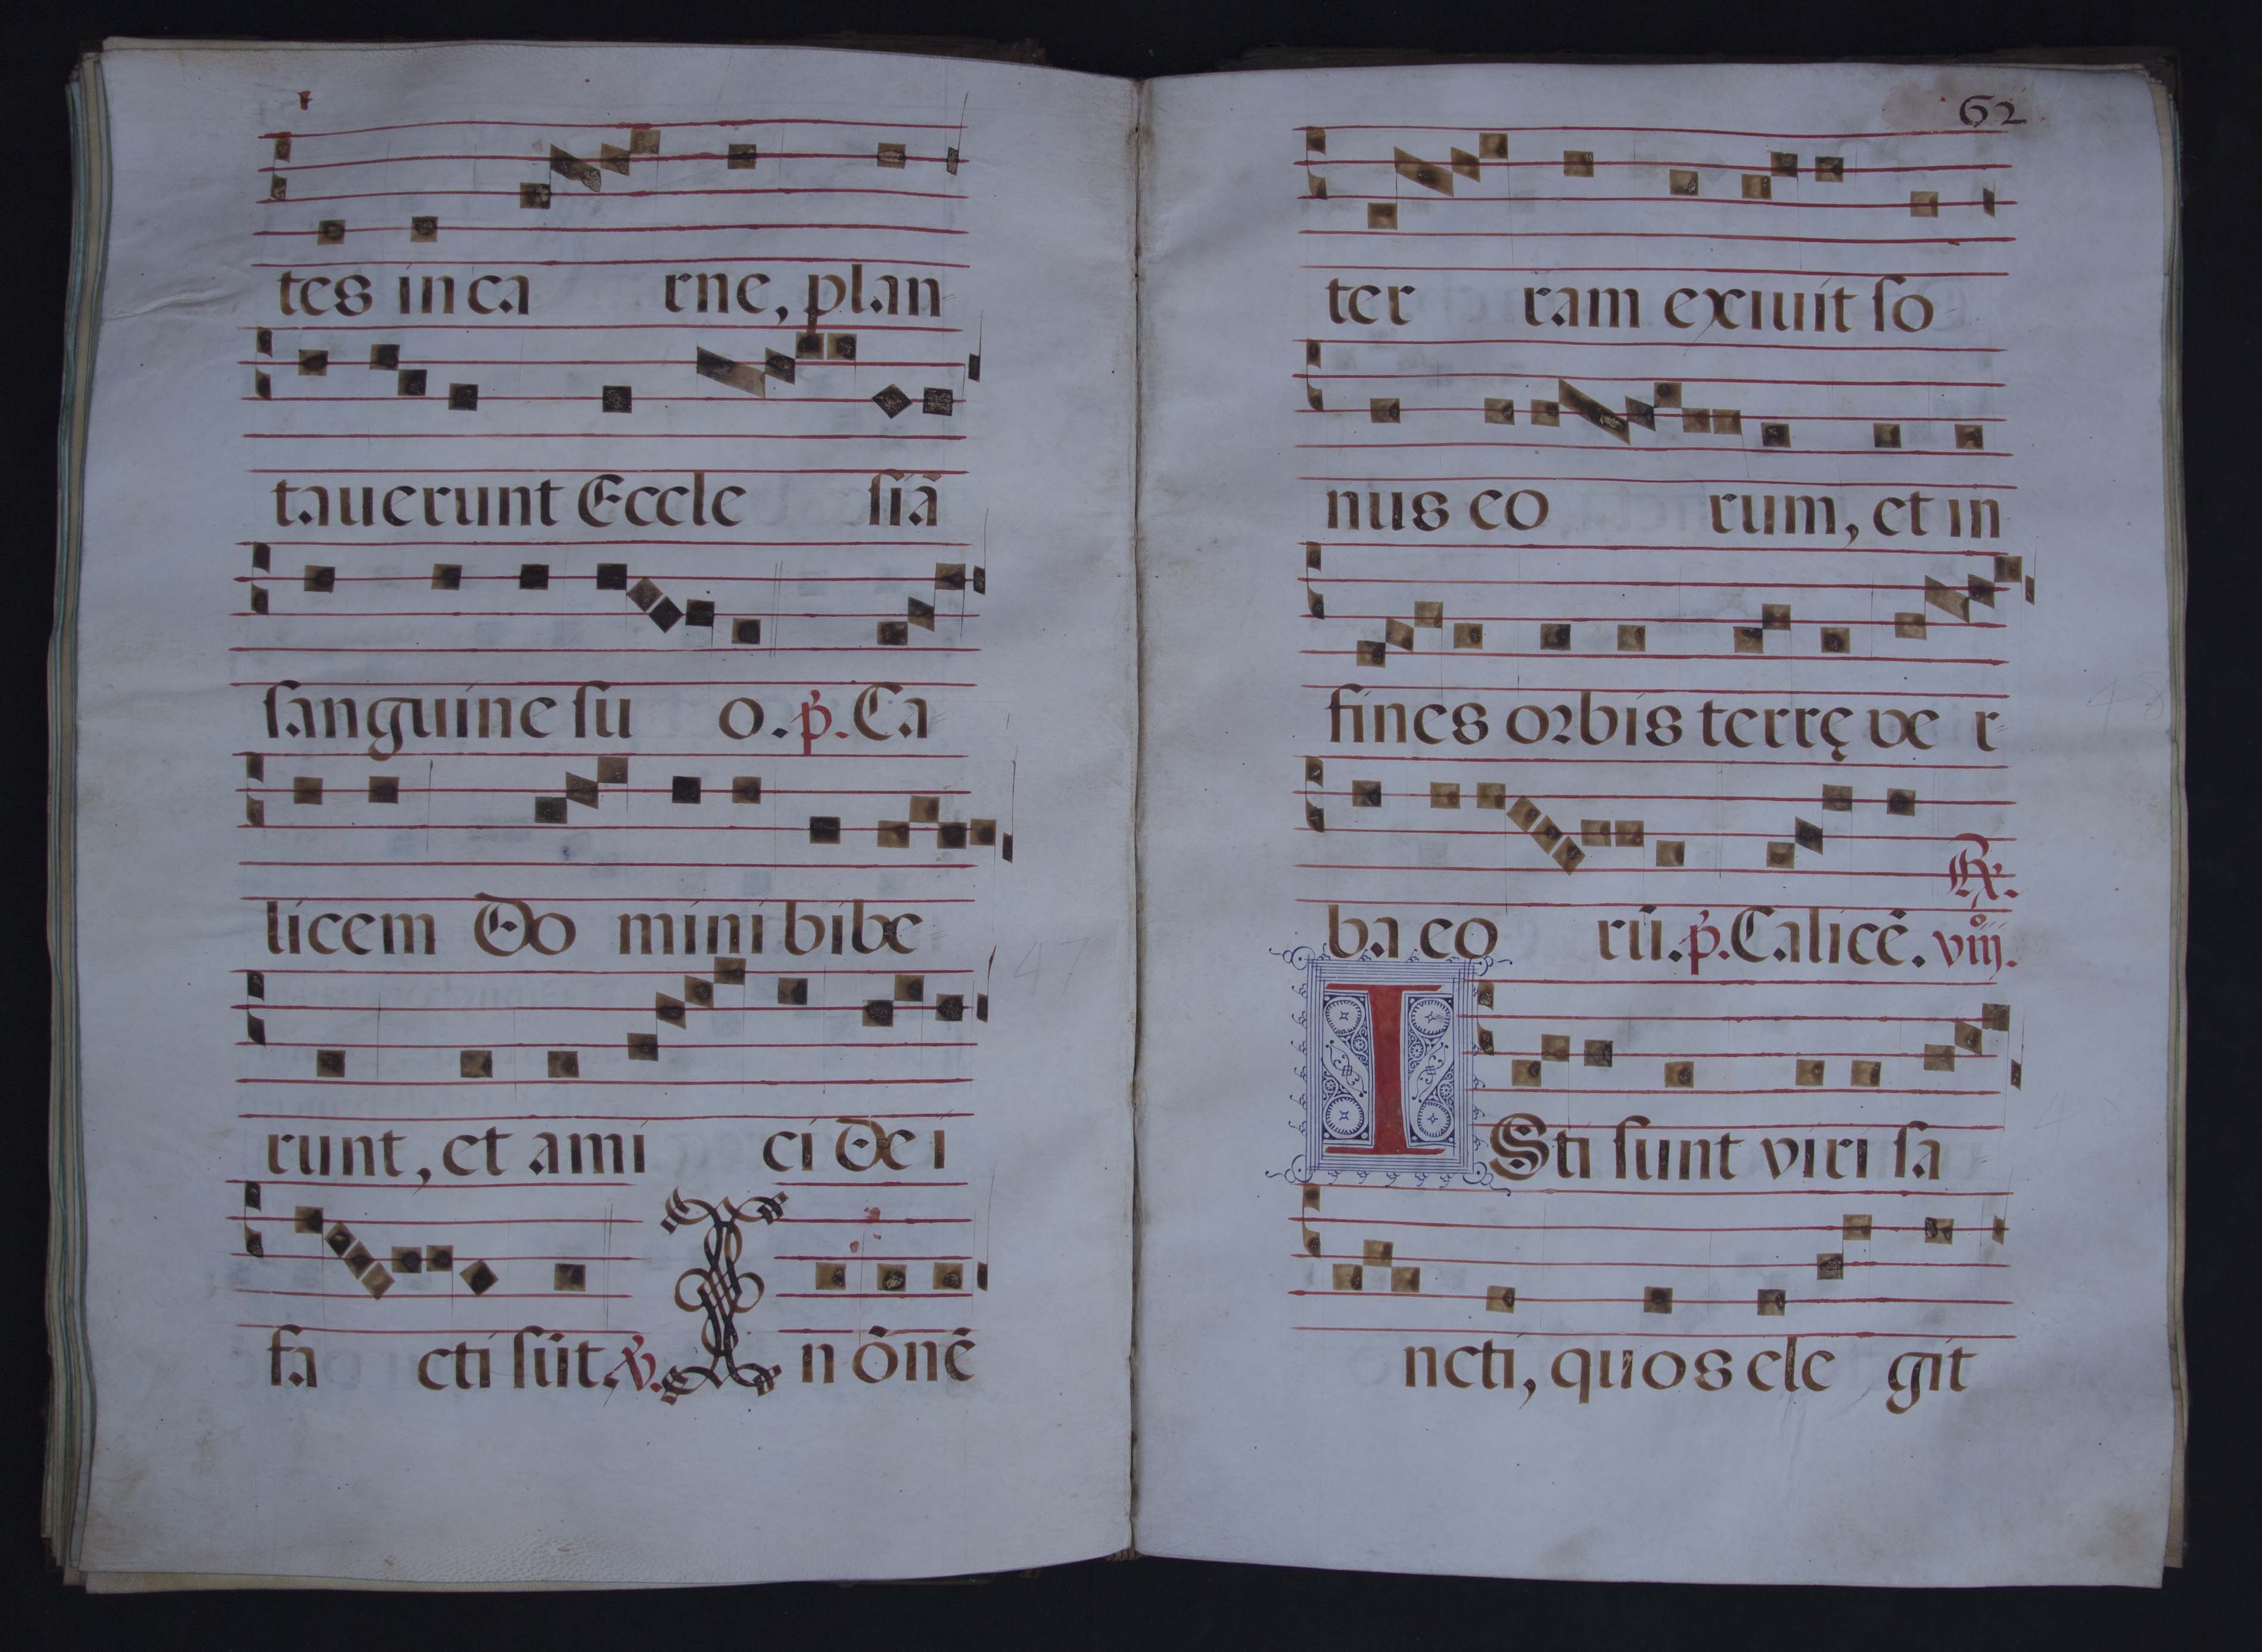 tes in ca rne, plan
tauerunt Eccle ſiã
ſanguine ſu o. p̃. Ca
licem Do mini bibe
runt, et ami ci De i
fa cti ſũt. ℣. In õnẽ
62
ter ram exiuit ſo
nus eo rum, et in
fines orbis terrę ve r
ba eo rũ. p̃. Calicẽ. viij.
ISti ſunt viri ſa
ncti, quos ele git